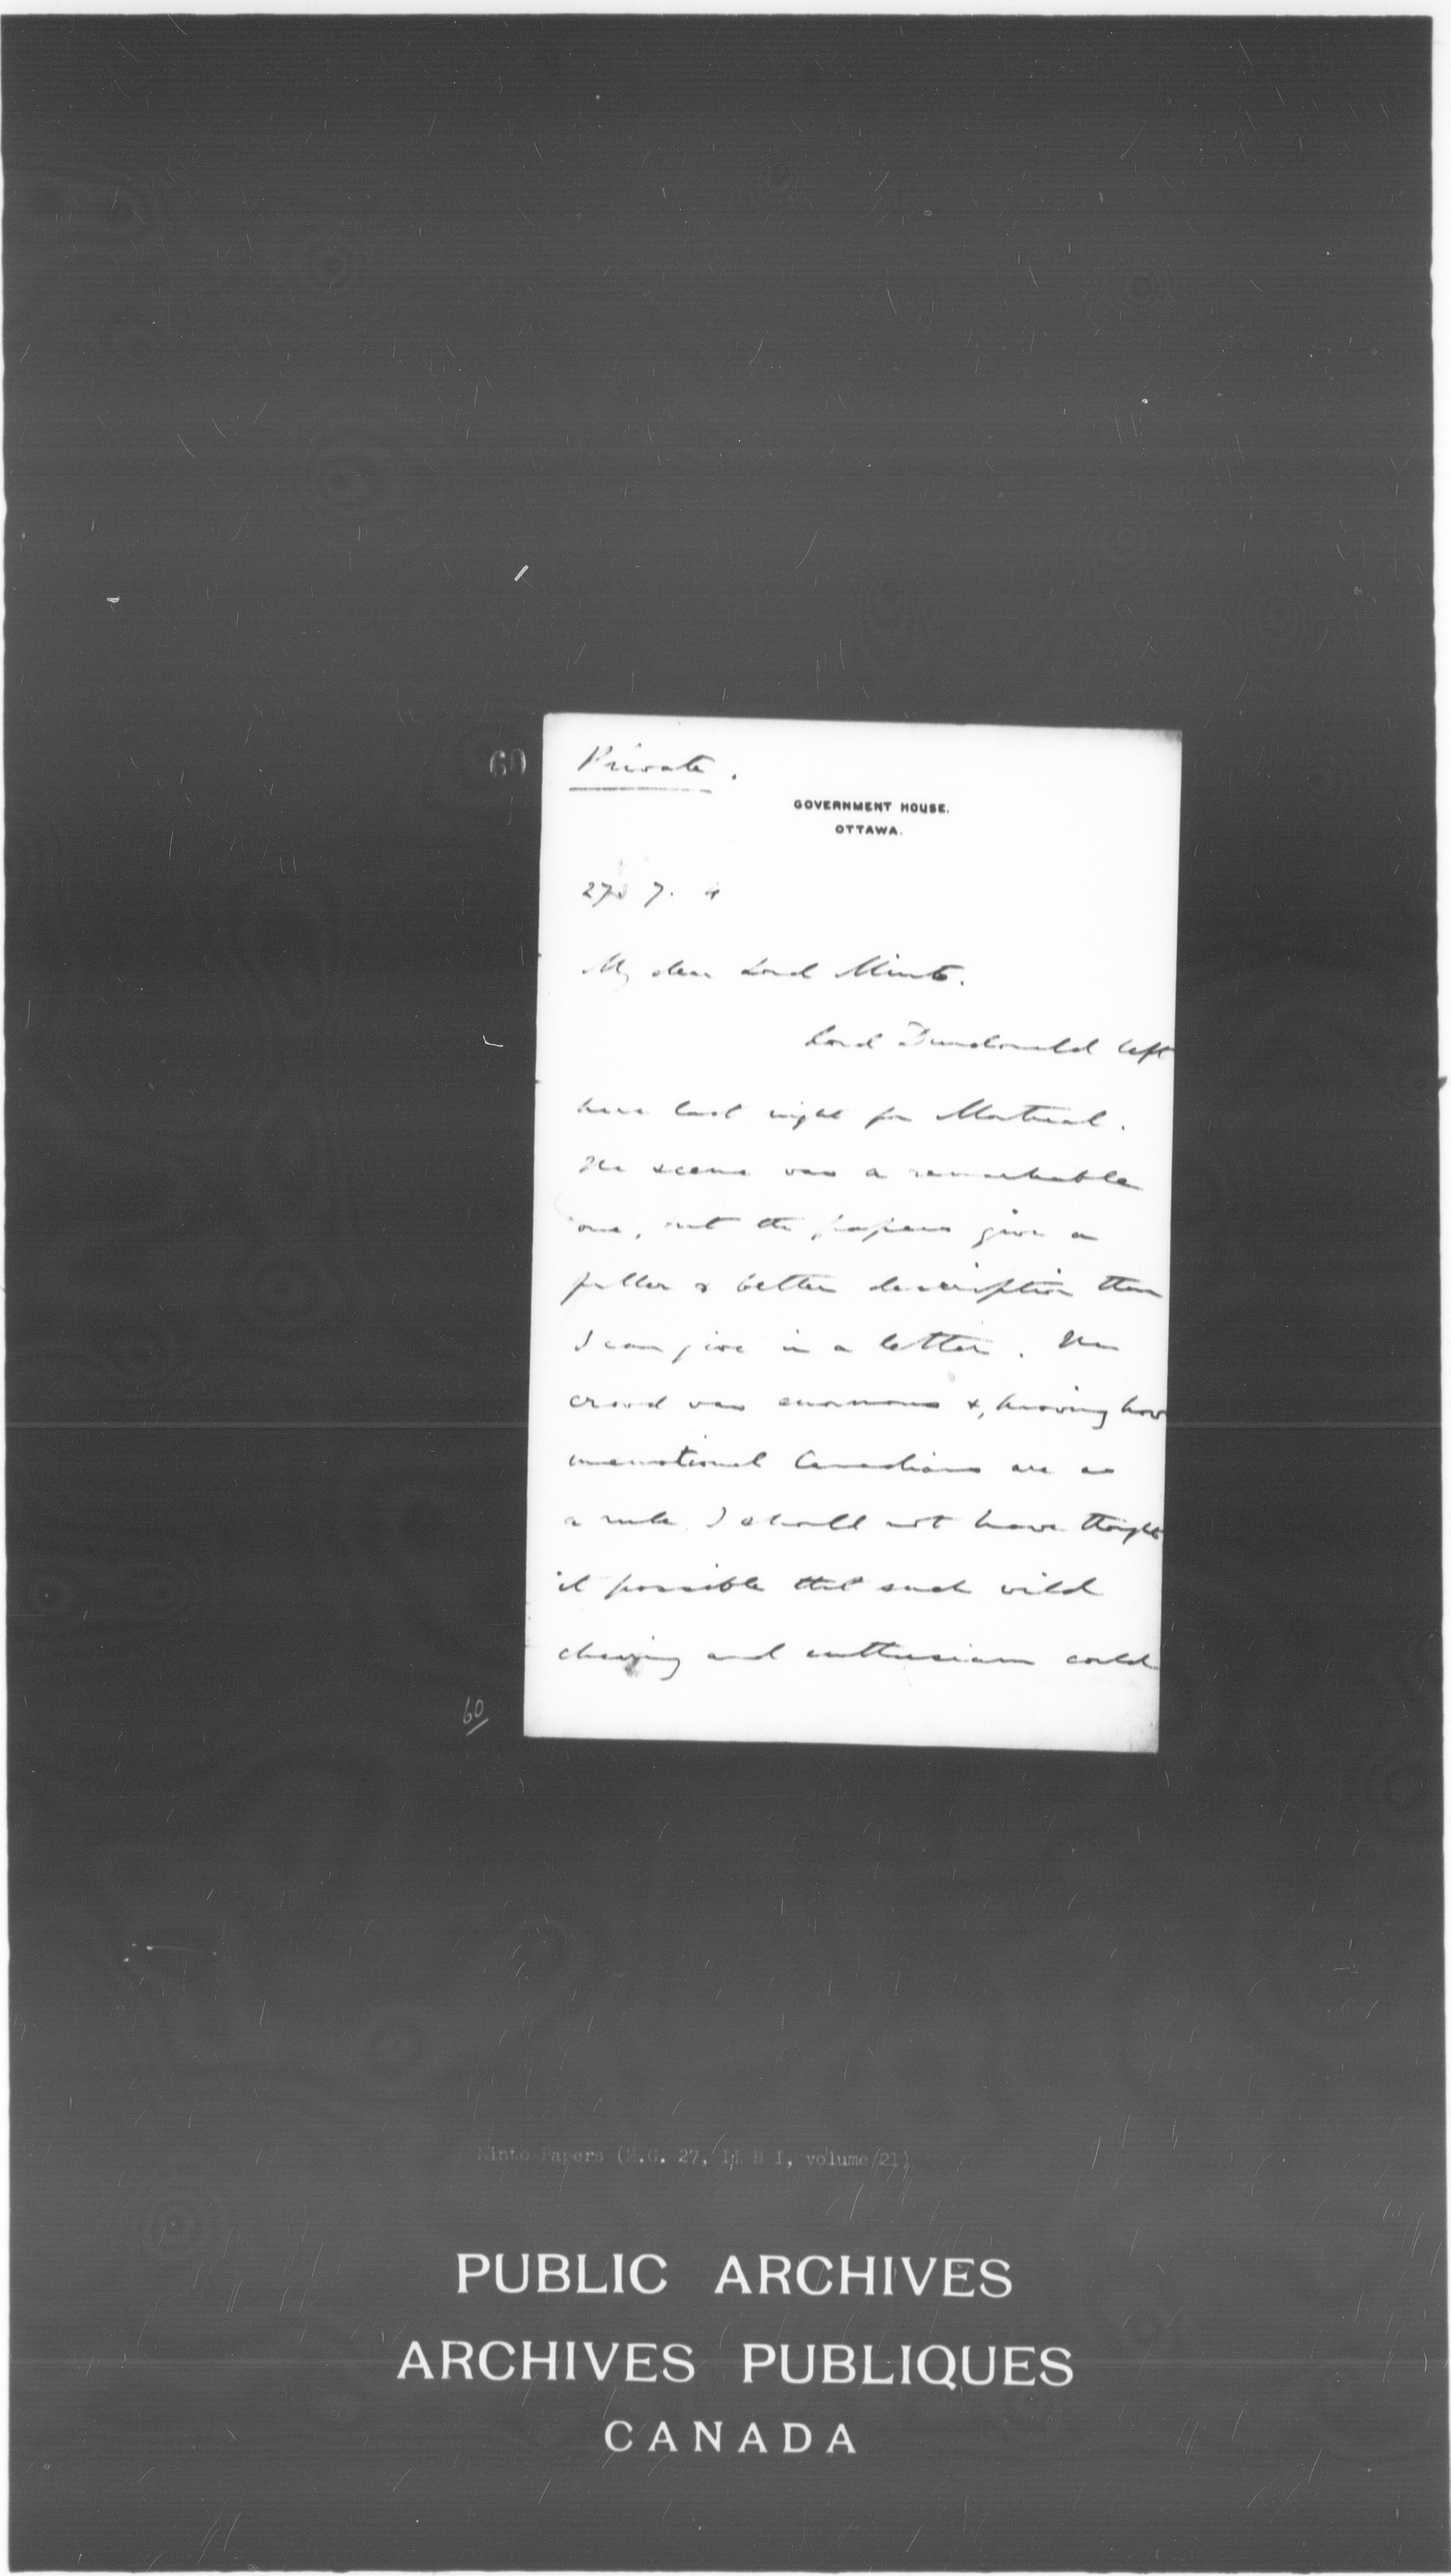 60
Private.
GOVERNMENT HOUSE.
OTTAWA.
27. 7. 4
My dear Lord Minto.
Lord Dundonald left
here last night for Montreal.
The scene was a remarkable
one, but the papers give a
fuller & better description than
I can give in a letter. The
crowd was enormous &, knowing how
unemotional Canadians are as
a rule, I should not have thought
it possible that such wild
cheering and enthusiasm could
60
Minto Papers (M.G. 27, II B I, volume 21)
PUBLIC ARCHIVES
ARCHIVES PUBLIQUES
CANADA